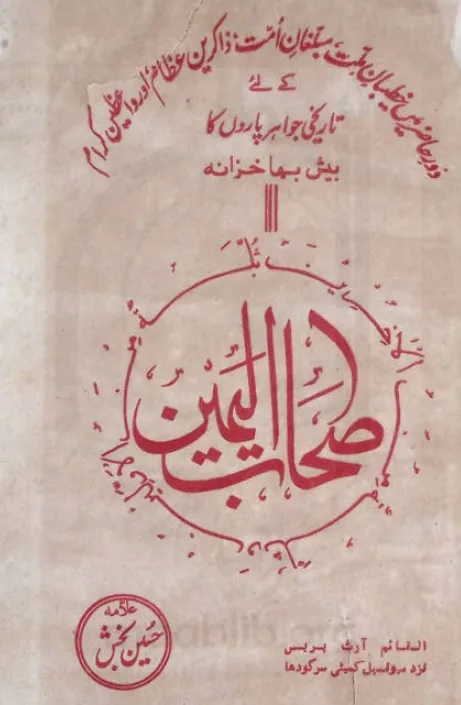 دور حاضر میں خطیبانِ ملت، مبلغانِ اُمت، ذاکرینِ عظام اور واعظین کرام
کے لئے
تاریخی جواہر پاروں کا
بیش بہا خزانہ
اصحاب الیمین
علامہ
حسین بخش
القائم آرٹ پریس
نزد میونسپل کمیٹی سرگودھا